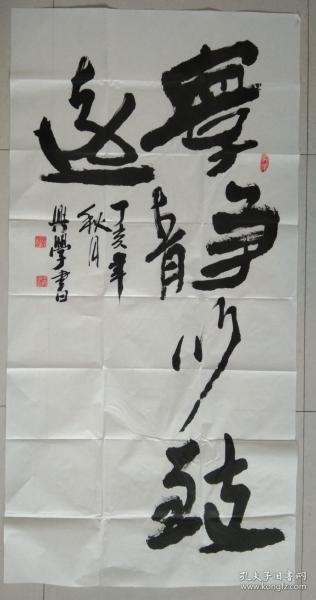 寧静以致
遠
丁亥年
秋月
興學書
孔夫子旧书网